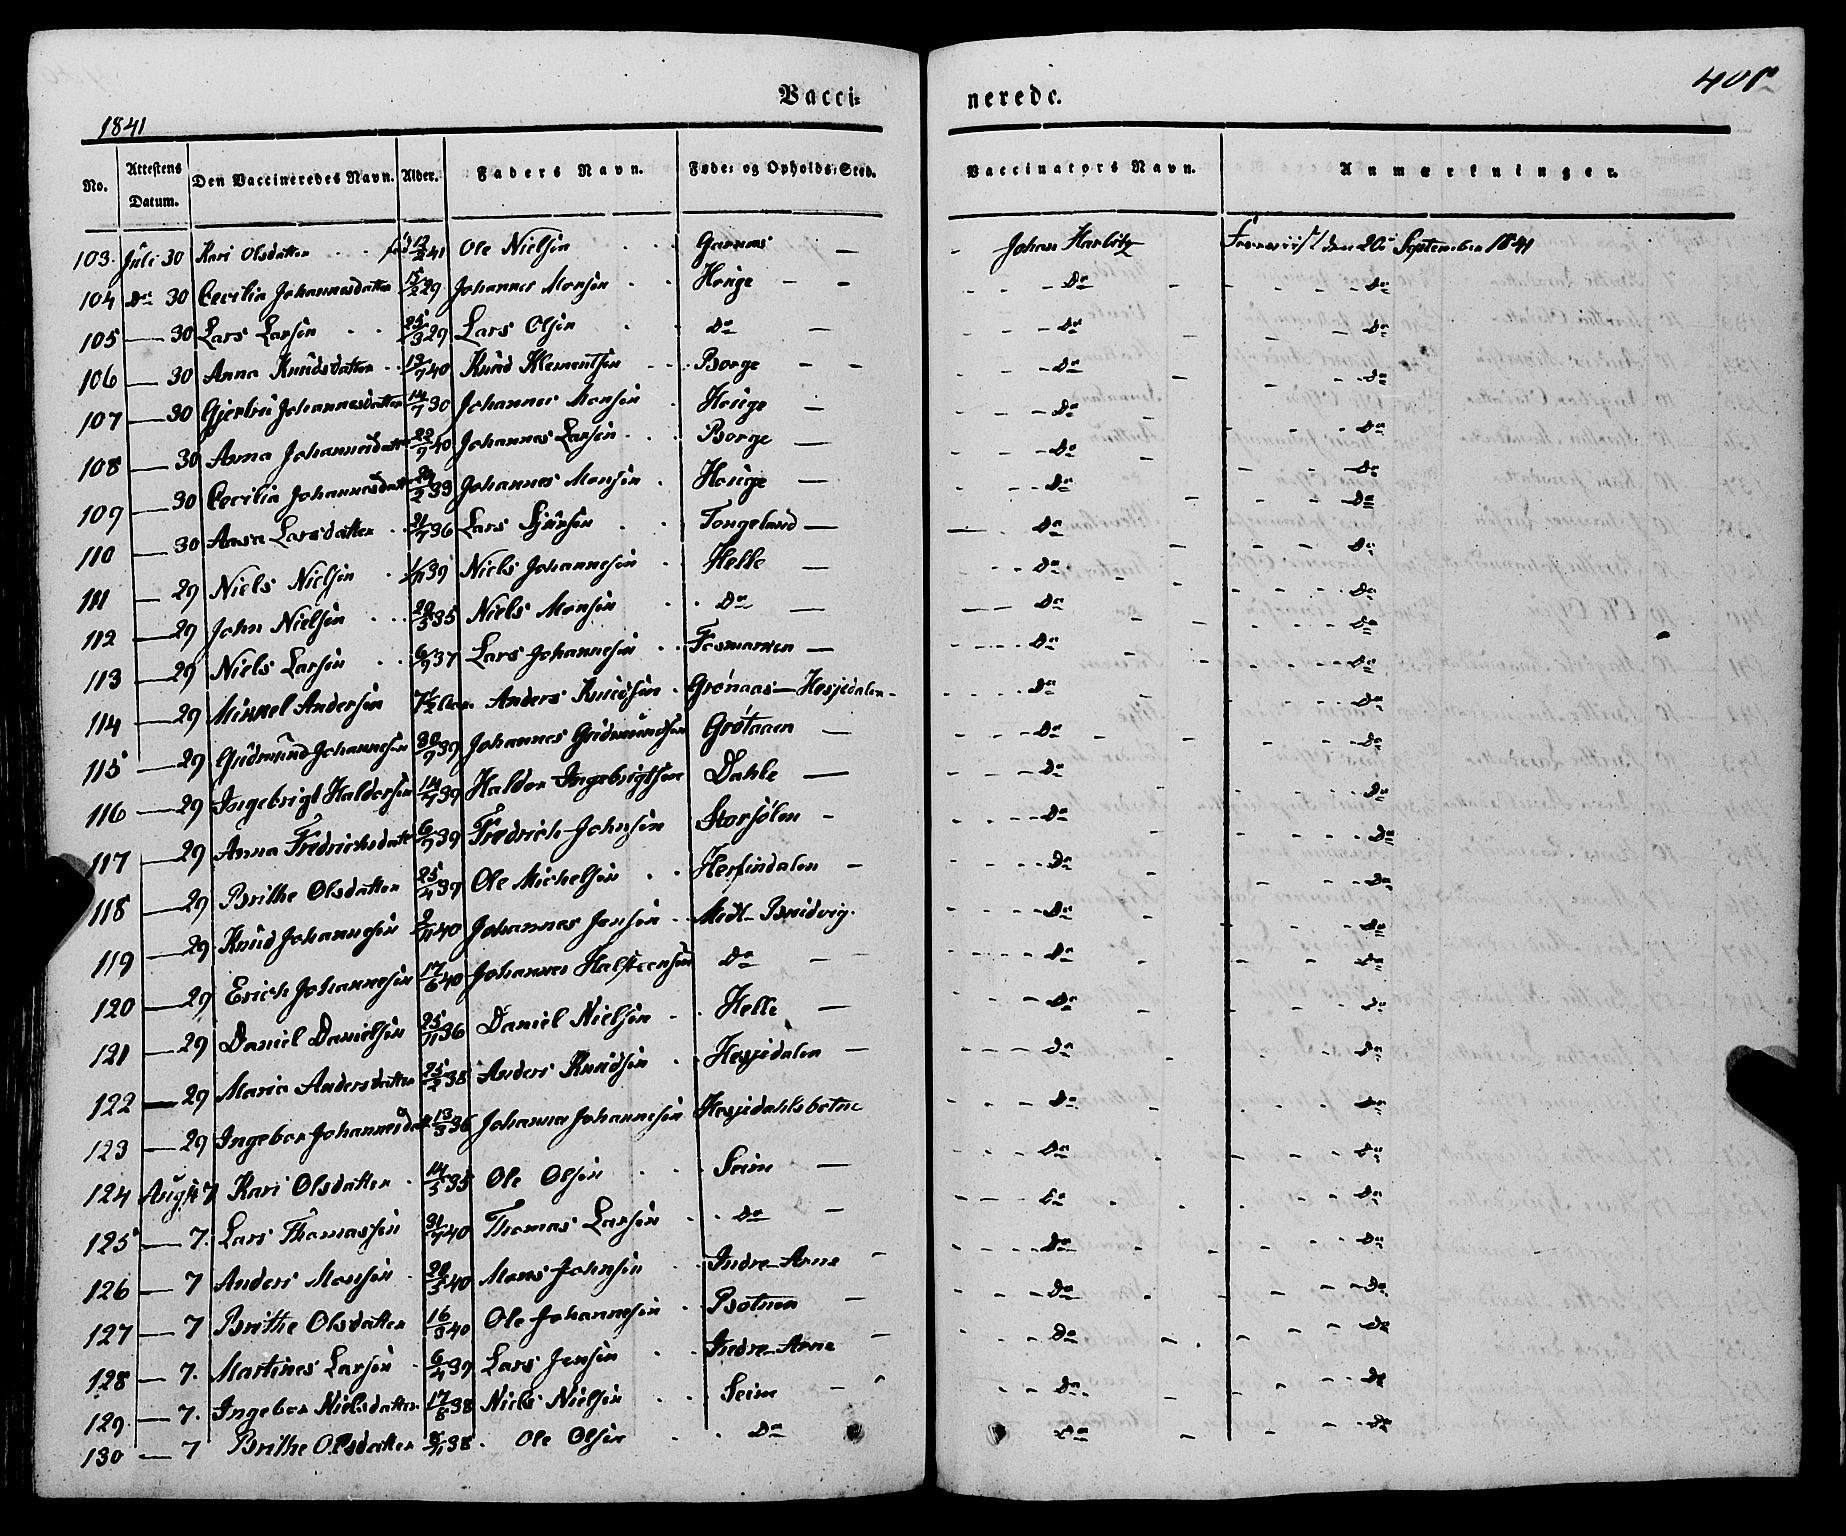 408
Vacci= nerede.
1841
No. Attestens Datum. Den Vaccineredes Navn. Alder. Faders Navn. Føde- og Opholds-Sted. Vaccinators Navn. Anmærkninger.
103. Juli 30 Kari Olsdatter 12/2 41 Ole Nielsen Garnæs Johan Harbitz Foreviist den 20de September 1841
104 Do 30 Cecilia Johannesdatter 15/2 29 Johannes Monsen Houge Do Do
105 30 Lars Larsen 25/3 29 Lars Olsen Do Do Do
106 30 Anna Knudsdatter 13/7 40 Knud Klementsen Borge Do Do
107 30 Gjertru Johannesdatter 14/7 30 Johannes Monsen Houge Do Do
108 30 Anna Johannesdatter 22/9 40 Johannes Larsen Borge Do Do
109 30 Cecilia Johannesdatter 20/2 39 Johannes Monsen Houge Do Do
110 30 Anna Larsdatter 21/7 36 Lars Sjursen Tongeland Do Do
111 29 Niels Nielsen 1/11 39 Niels Johannesen Helle Do Do
112 29 John Nielsen 20/3 35 Niels Monsen Do Do Do
113 29 Niels Larsen 6/9 37 Lars Johannesen Fosmarken Do Do
114 29 Mikkel Andersen 7 1/2 Aar Anders Knudsen Grønaas Hesjedalen Do Do
115 29 Gudmund Johannesen 30/9 39 Johannes Gudmundsen Grøtaaen Do Do
116 29 Ingebrigt Haldorsen 14/7 39 Haldor Ingebrigtsen Dahle Do Do
117 29 Anna Fredrichsdatter 6/7 39 Fredrich Johnsen Storsølen Do Do
118 29 Brithe Olsdatter 25/4 39 Ole Michelsen Herfindalen Do Do
119 29 Knud Johannesen 2/11 40 Johannes Jensen Midt-Brudvig. Do Do
120 29 Erich Johannesen 17/6 40 Johannes Halsteensen Do Do Do
121 29 Daniel Danielsen 25/11 36 Daniel Nielsen Helle Do Do
122 29 Maria Andersdatter 25/2 38 Anders Knudsen Hesjedalen Do Do
123 29 Ingebor Johannesdat 13/3 36 Johannes Johannesen Hesjedahlsbotne Do Do
124 August 7 Kari Olsdatter 14/5 35 Ole Olsen Seim Do Do
125 7. Lars Thomassen 31/7 40 Thomas Larsen Do Do Do
126 7 Anders Monsen 20/5 40 Mons Johnsen Indre-Arne Do Do
127 7 Brithe Olsdatter 16/3 40 Ole Johannesen Botnen Do Do
128 7. Martines Larsen 6/4 39 Lars Jensen Indre-Arne Do Do
129 7. Ingebor Nielsdatter 17/8 38 Niels Nielsen Seim Do Do
130 7 Brithe Olsdatter 38 Ole Olsen Do Do Do